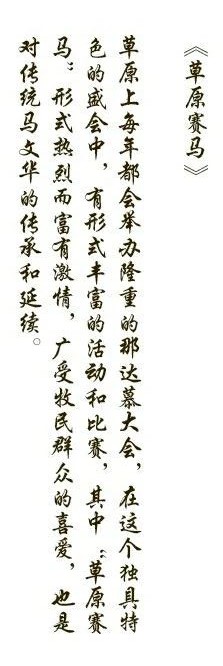 《草原赛马》
草原上每年都会举办隆重的那达慕大会，在这个独具特
色的盛会中，有形式丰富的活动和比赛，其中“草原赛
马”形式热烈而富有激情，广受牧民群众的喜爱，也是
对传统马文华的传承和延续。